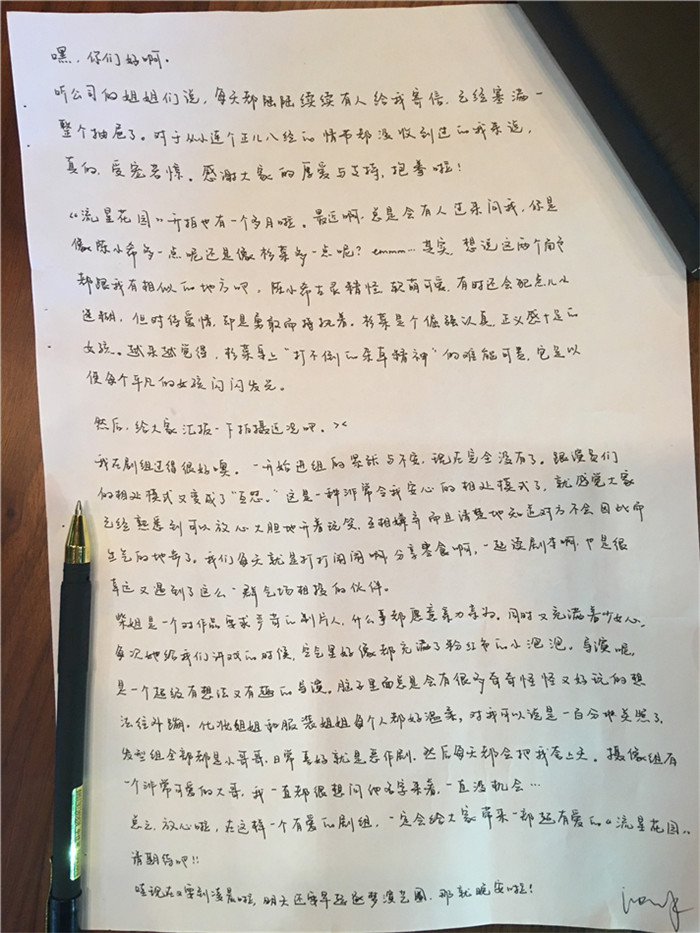 嘿，你们好啊。
听公司的姐姐们说，每天都陆陆续续有人给我寄信，已经塞满一
整个抽屉了。对于从小连个正儿八经的情书都没收到过的我来说，
真的，受宠若惊。感谢大家的厚爱与支持，抱拳啦！
《流星花园》开拍也有一个多月啦。最近啊，总是会有人过来问我，你是
像陈小希多一点呢还是像杉菜多一点呢？emmm…其实，想说这两个角色
都跟我有相似的地方吧，陈小希古灵精怪，软萌可爱，有时还会犯点儿小
迷糊，但对待爱情，却是勇敢而持执着。杉菜是个倔强认真，正义感十足的
女孩。越来越觉得，杉菜身上"打不倒的杂草精神"的难能可贵，它足以
使每个平凡的女孩闪闪发光。
然后，给大家汇报一下拍摄近况吧。><
我在剧组过得很好噢。一开始进组的紧张与不安，现在完全没有了。跟演员们
的相处模式又变成了"互怼。"这是一种非常令我安心的相处模式了，就感觉大家
已经熟悉到可以放心大胆地开着玩笑，互相嫌弃而且清楚地知道对方不会因此而
生气的地步了。我们每天就是打打闹闹啊，分享零食啊，一起读剧本啊，也是很
幸运又遇到了这么一群气场相投的伙伴。
柴姐是一个对作品要求苛刻的制片人，什么事都愿意亲力亲为。同时又充满着少女心，
每次她给我们讲戏的时候，空气里好像都充满了粉红色的小泡泡。导演呢，
是一个超级有想法又有趣的导演。脑子里面总是会有很多奇奇怪怪又好玩的想
法往外蹦。化妆姐姐和服装姐姐每个人都好温柔，对我可以说是一百分地关照了，
发型组全部都是小哥哥，日常喜好就是恶作剧，然后每天都会把我夸上天。摄像组有
一个非常可爱的大哥，我一直都很想问他名字来着，一直没机会…
总之，放心啦，在这样一个有爱的剧组，一定会给大家带来一部超有爱的《流星花园》。
请期待吧!!
哇现在又要到凌晨啦，明天还要早起
那就晚安啦！